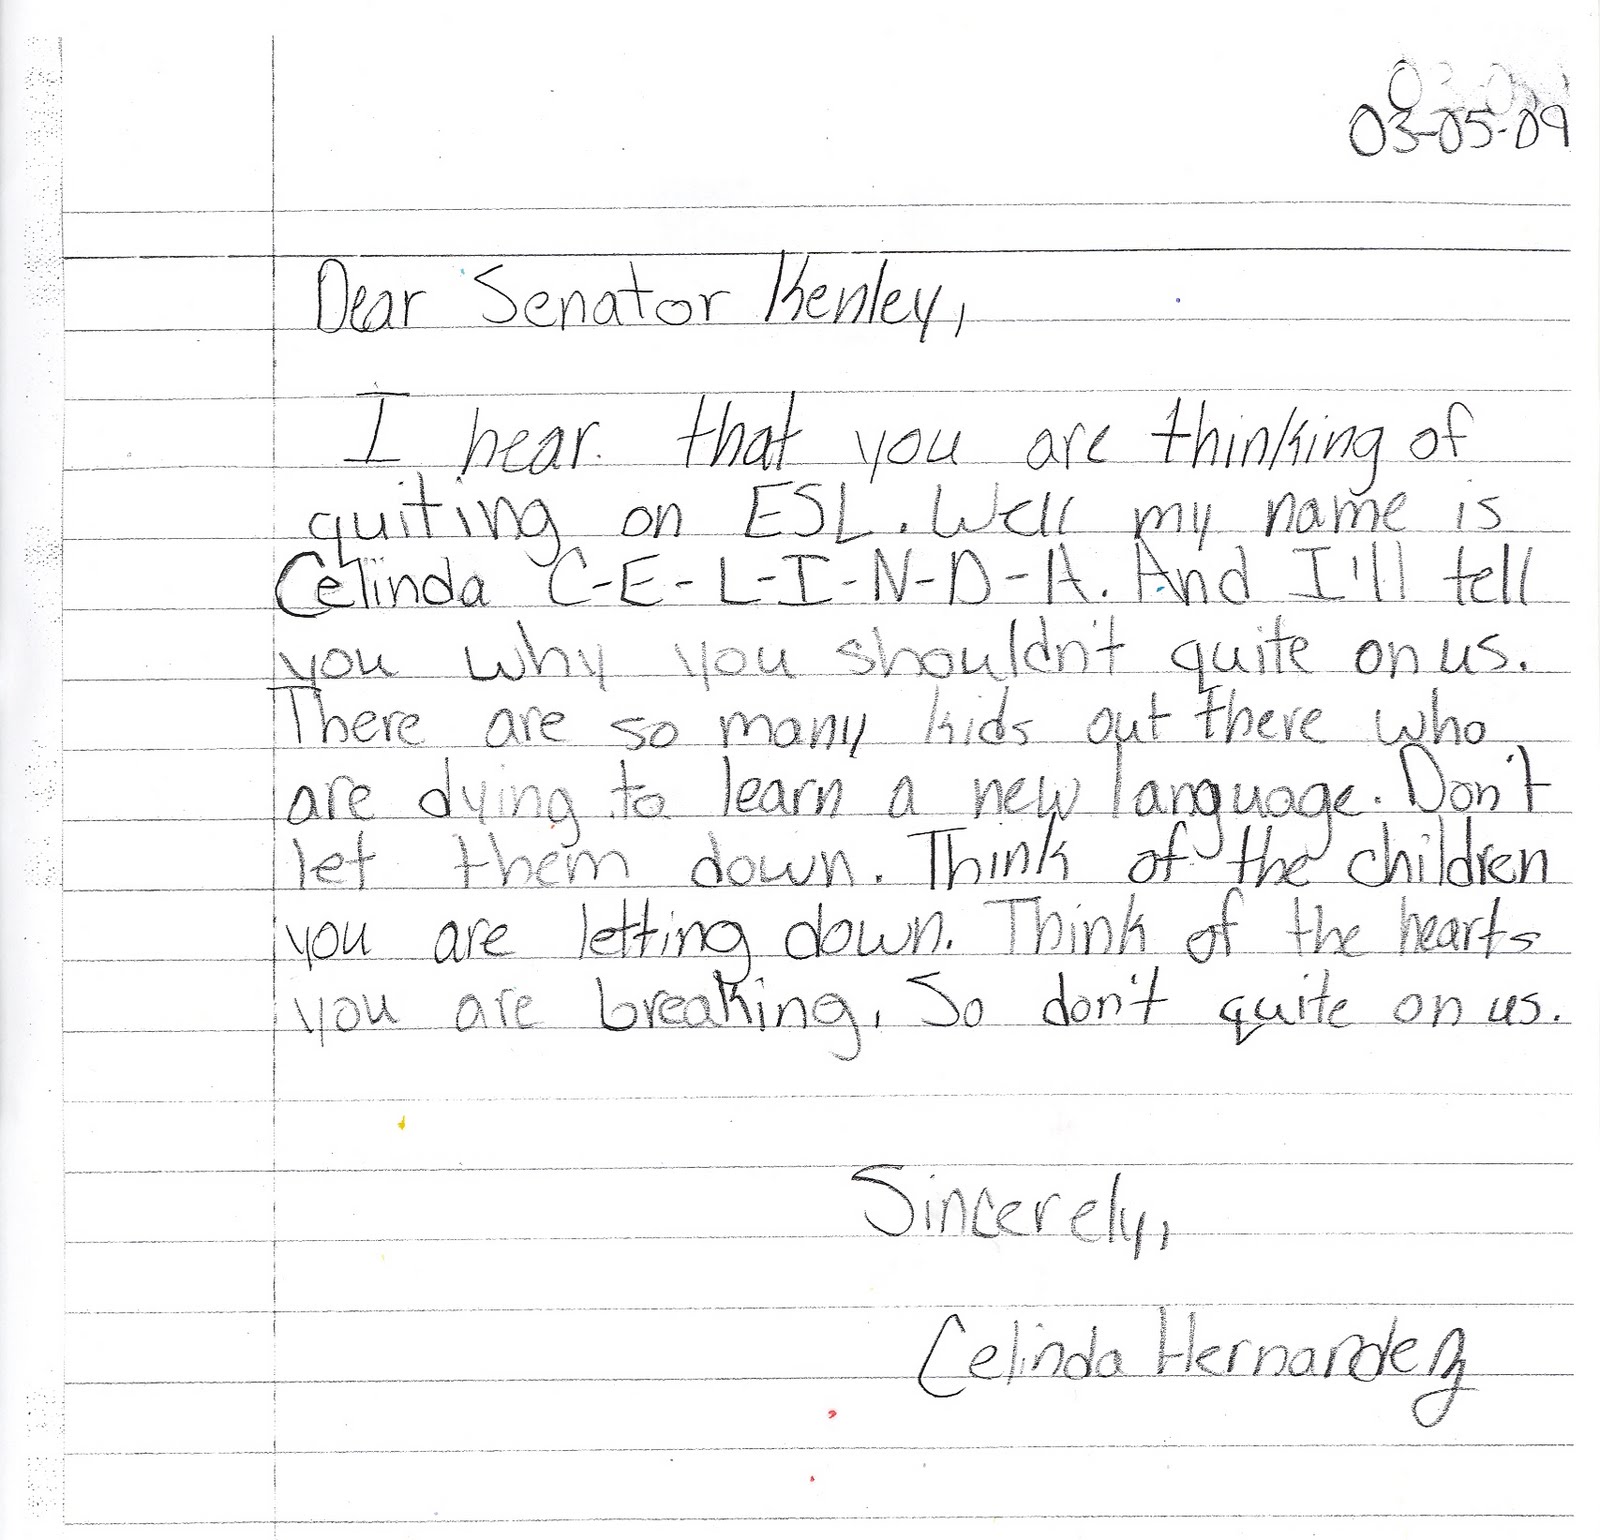 03-05-09
Dear Senator Kenley,
I hear that you are thinking of
quiting on ESL. Well my name is
Celinda C-E-L-I-N-D-A. And I'll tell
you why you shouldn't quite on us.
There are so many kids out there who
are dying to learn a new language. Don't
let them down. Think of the children
you are letting down. Think of the hearts
you are breaking. So don't quite on us.
Sincerely,
Celinda Hernandez